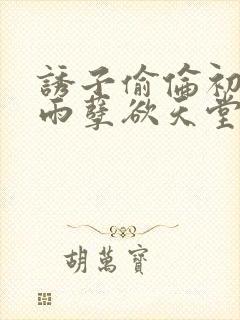 誘子偷倫初
雨孽欲天堂
胡萬寶